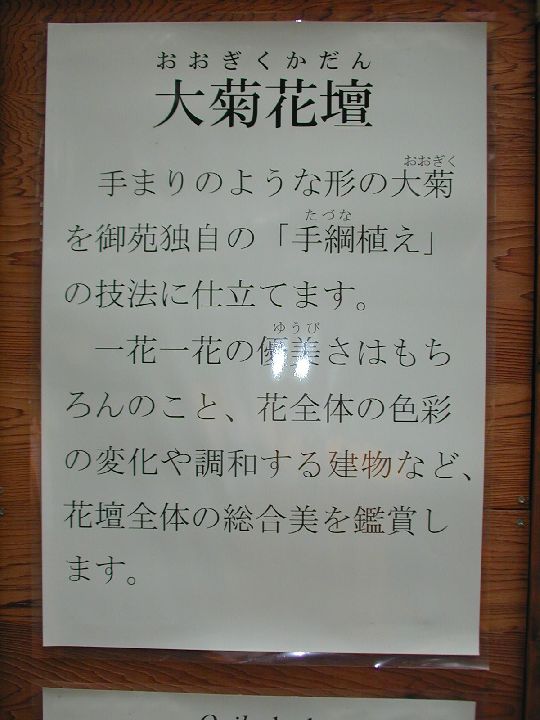 おおぎくかだん
大菊花壇
おおぎく
手まりのような形の大菊
たづな
を御苑独自の「手綱植え」
の技法に仕立てます。
ゆうび
一花一花の優美さはもち
ろんのこと、花全体の色彩
の変化や調和する建物など、
花壇全体の総合美を鑑賞し
ます。